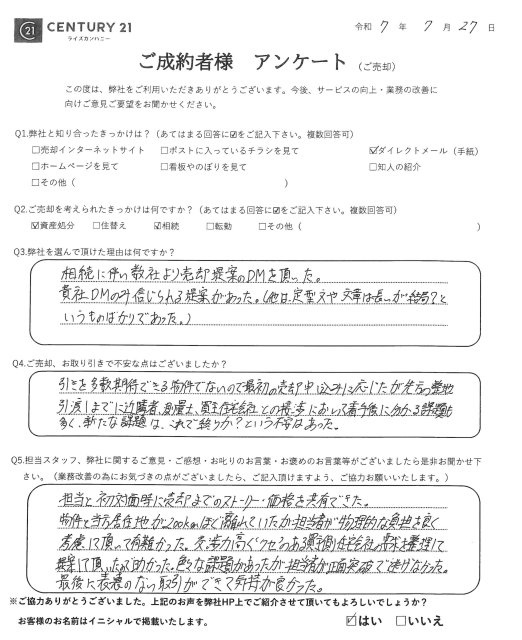 CENTURY 21
ライズカンパニー
令和 7 年 7 月 27 日
ご成約者様 アンケート（ご売却）
この度は、弊社をご利用いただきありがとうございます。今後、サービスの向上・業務の改善に
向けご意見ご要望をお聞かせください。
Q1.弊社と知り合ったきっかけは？（あてはまる回答に☑をご記入下さい。複数回答可）
□売却インターネットサイト □ポストに入っているチラシを見て ☑ダイレクトメール（手紙）
□ホームページを見て □看板やのぼりを見て □知人の紹介
□その他（ ）
Q2.ご売却を考えられたきっかけは何ですか？（あてはまる回答に☑をご記入下さい。複数回答可）
☑資産処分 □住替え ☑相続 □転勤 □その他（ ）
Q3.弊社を選んで頂けた理由は何ですか？
相続に伴い数社より売却提案のDMを頂いた。
貴社DMのみ信じられる提案があった。（他は、定型文や文章は長いが結局？と
いうものばかりであった。）
Q4.ご売却、お取り引きで不安な点はございましたか？
引きを多数期待できる物件でないので最初の売却申し込みに応じたが
引渡しまでに近隣者、測量士、買主住宅会社との接渉において着手後に分かる課題も
多く、新たな課題は、これで終りか？という不安はあった。
Q5.担当スタッフ、弊社に関するご意見・ご感想・お叱りのお言葉・お褒めのお言葉等がございましたら是非お聞かせ下
さい。（業務改善の為にお気づきの点がございましたら、ご記入頂けますよう、ご協力お願いいたします。）
担当と初対面時に売却までのストーリー・価格を共有できた。
物件と当方居住地が200kmほど離れていたが担当者が物理的な負担を良く
考慮して頂いて有難かった。 クセのある買手側住宅会社の要求を整理して
提案して頂いたので助かった。色々な課題があったが担当者が正面突破で逃げなかった。
最後に表裏のない取引ができて気持が良かった。
※ご協力ありがとうございました。上記のお声を弊社HP上でご紹介させて頂いてもよろしいでしょうか？
お客様のお名前はイニシャルで掲載いたします。 ☑はい □いいえ